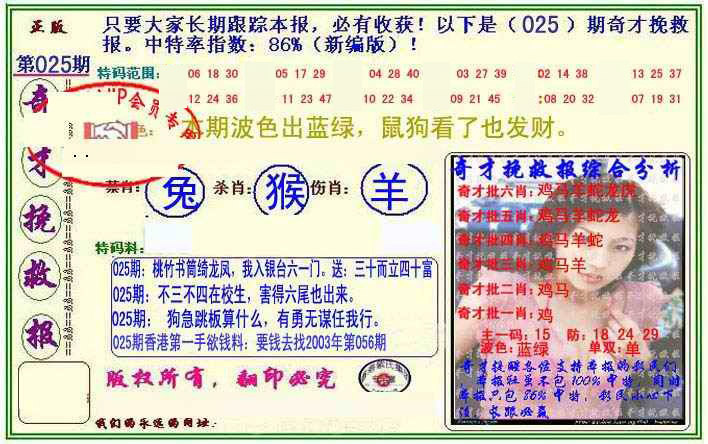 正版
只要大家长期跟踪本报，必有收获！以下是（025）期奇才挽救
报。中特率指数：86%（新编版）！
第025期
特码范围：
06 18 30 05 17 29 04 28 40 03 27 39 02 14 38 13 25 37
12 24 36 11 23 47 10 22 34 09 21 45 08 20 32 07 19 31
奇才挽救报
"P会员专
色：本期波色出蓝绿，鼠狗看了也发财。
禁肖：兔 杀肖：猴 伤肖：羊
特码料：
025期：桃竹书筒绮龙凤，我入银台六一门。送：三十而立四十富
025期：不三不四在校生，害得六尾也出来。
025期： 狗急跳板算什么，有勇无谋任我行。
025期香港第一手欲钱料：要钱去找2003年第056期
版权所有，翻印必究
我们的永远的网址：
奇才挽救报综合分析
奇才批六肖：鸡马羊蛇龙虎
奇才批五肖：鸡马羊蛇龙
奇才批四肖：鸡马羊蛇
奇才批三肖：鸡马羊
奇才批二肖：鸡马
奇才批一肖：鸡
主一码：15 防：18 24 29
波色：蓝绿 单双：单
奇才提醒各位支持本报的彩民们
本报只包 86%中特，彩民小心下
注